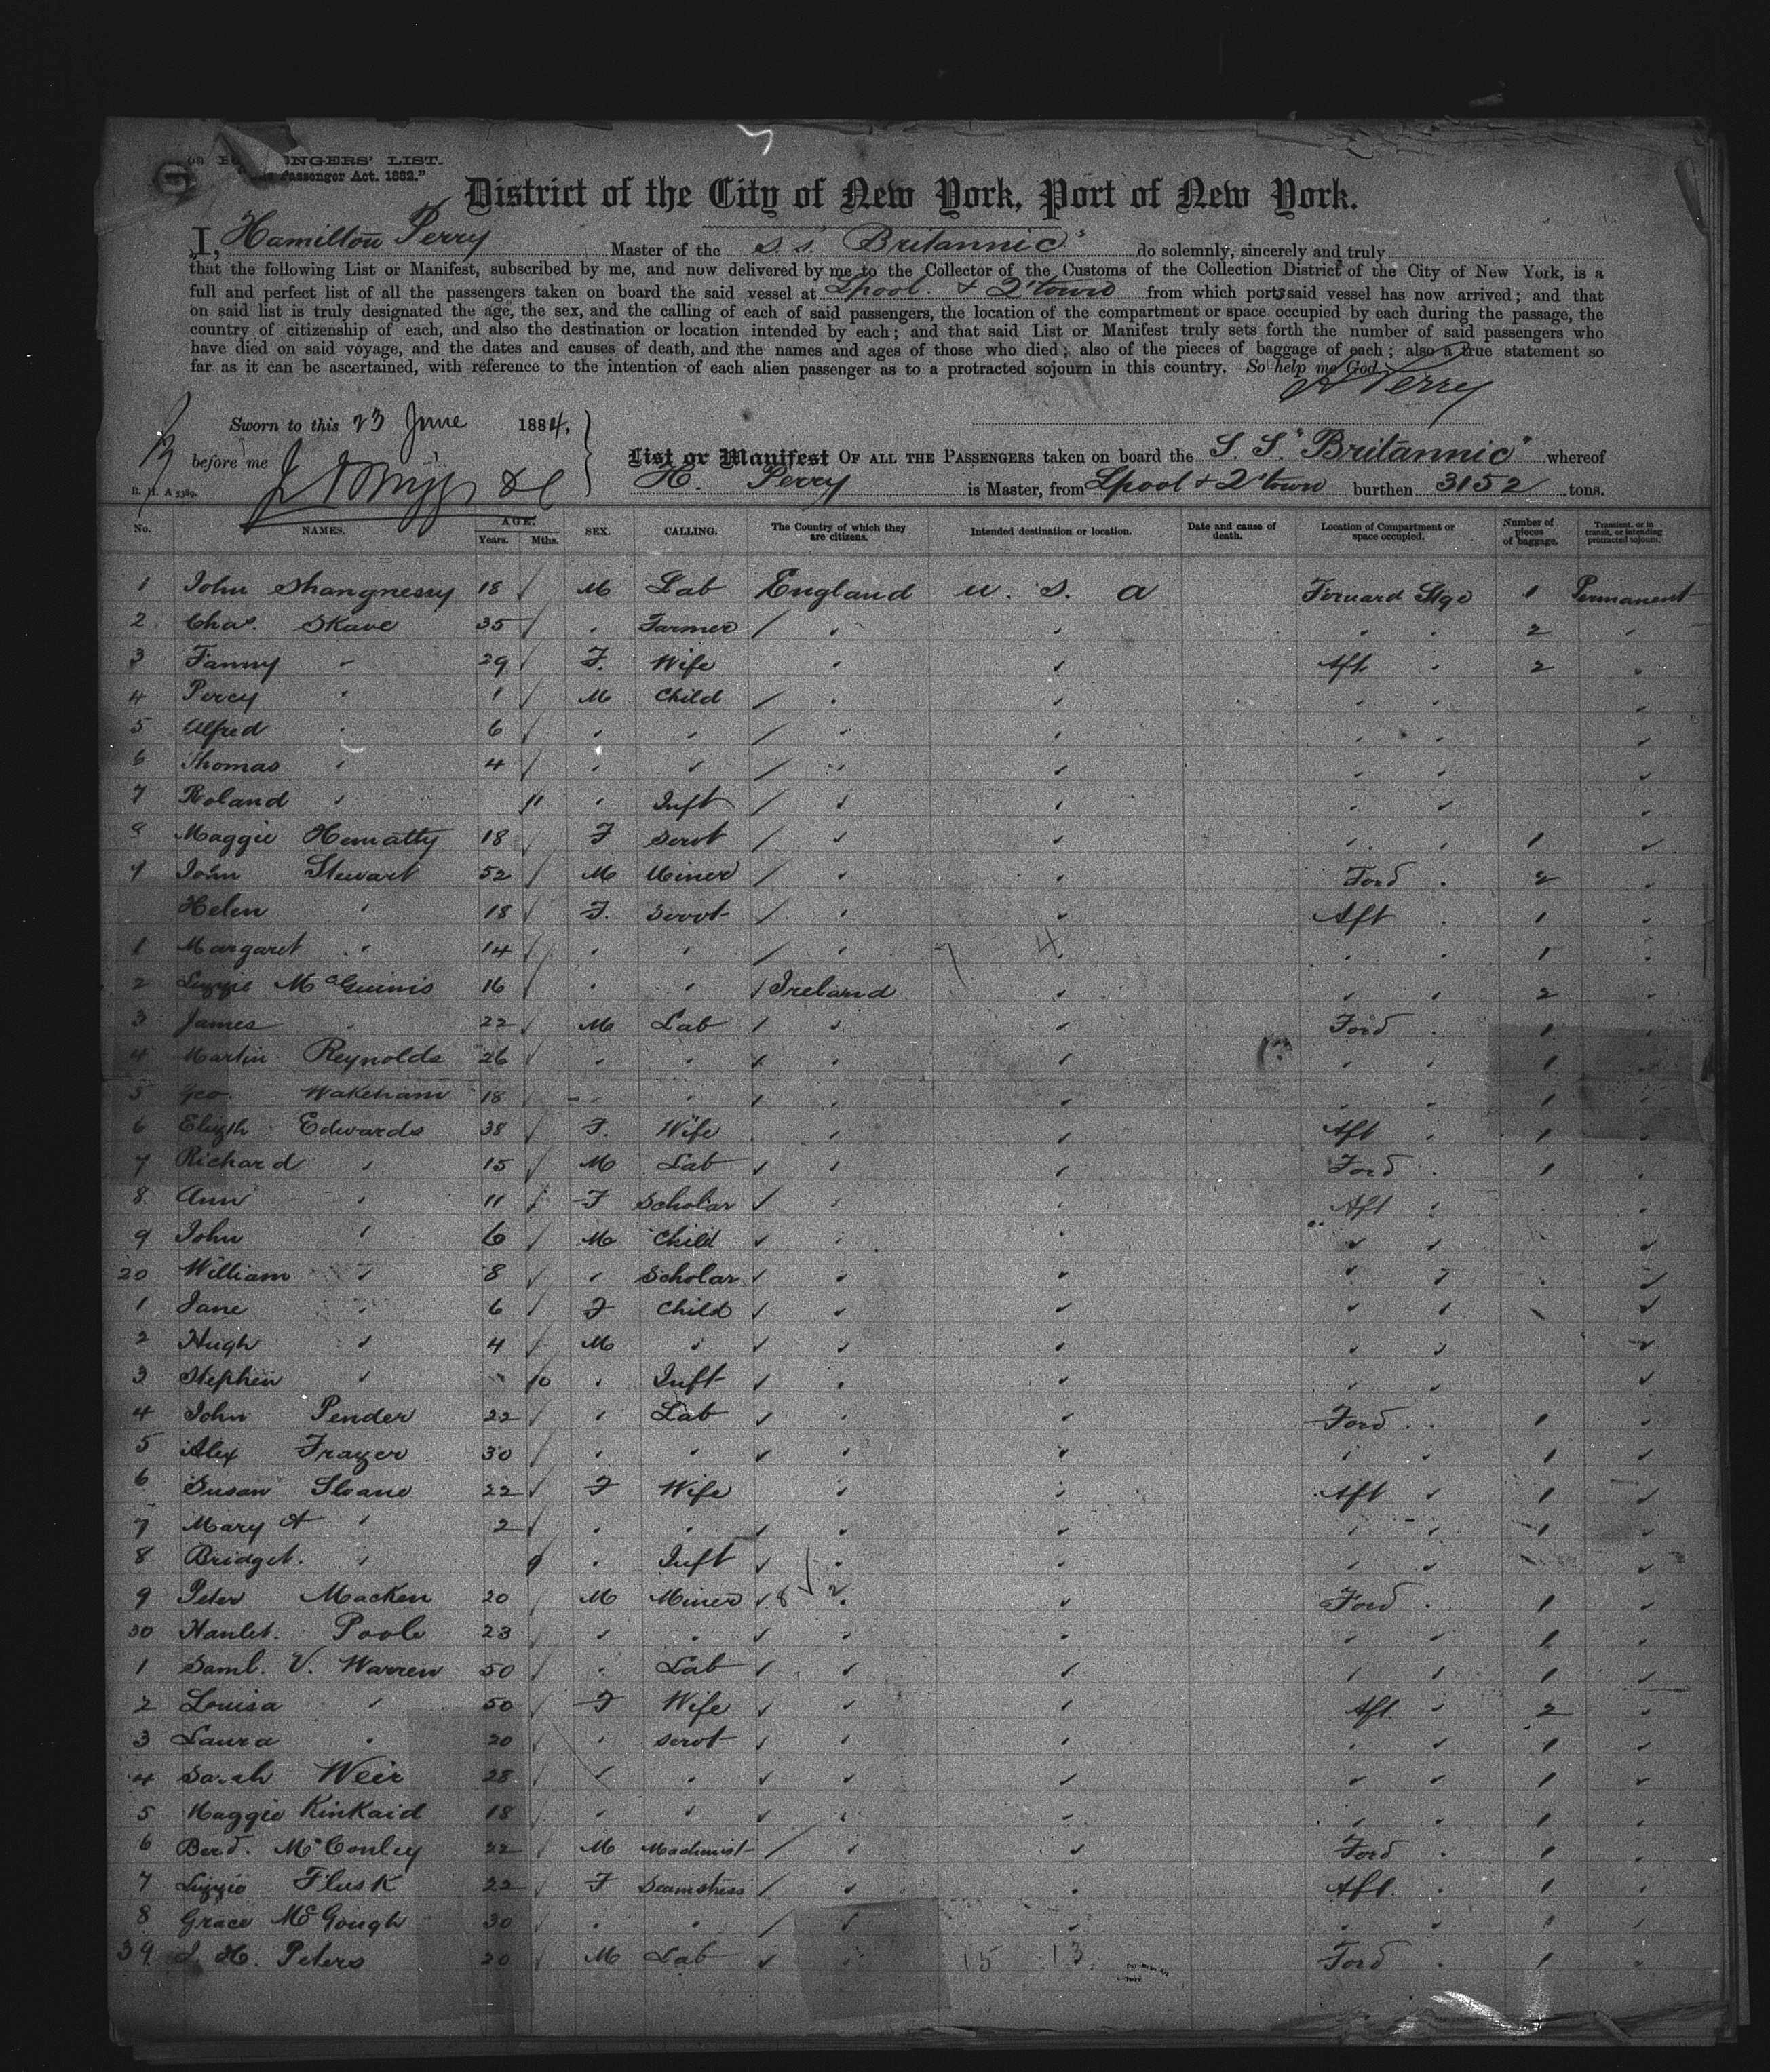 NGERS' LIST.
Passenger Act. 1882."
District of the City of New York, Port of New York.
I, Hamilton Perry Master of the S.S. "Britannic" do solemnly, sincerely and truly
that the following List or Manifest, subscribed by me, and now delivered by me to the Collector of the Customs of the Collection District of the City of New York, is a
full and perfect list of all the passengers taken on board the said vessel at Lpool. & Q'town from which ports said vessel has now arrived; and that
on said list is truly designated the age, the sex, and the calling of each of said passengers, the location of the compartment or space occupied by each during the passage, the
country of citizenship of each, and also the destination or location intended by each; and that said List or Manifest truly sets forth the number of said passengers who
have died on said voyage, and the dates and causes of death, and the names and ages of those who died; also of the pieces of baggage of each; also a true statement so
far as it can be ascertained, with reference to the intention of each alien passenger as to a protracted sojourn in this country. So help me God.
H Perry
Sworn to this 23 June 1884,
before me
List or Manifest OF ALL THE PASSENGERS taken on board the S. S. "Britannic" whereof
H. Perry is Master, from Lpool & Q'town burthen 3152 tons.
No. NAMES. AGE. Years. Mths. SEX. CALLING. The Country of which they are citizens. Intended destination or location. Date and cause of death. Location of Compartment or space occupied. Number of pieces of baggage. Transient, or in transit, or intending protracted sojourn.
1 John Shangnessy 18 M Lab England U. S. A Forward Stge 1 Permanent
2 Chas. Skave 35 " Farmer " " " " 2 "
3 Fanny " 29 F. Wife " " Aft " 2 "
4 Percy " 1 M Child " " " " "
5 Alfred " 6 " " " " " " "
6 Thomas " 4 " " " " " " "
7 Roland " 11 " Inft " " " " "
8 Maggie Hematty 18 F Servt " " " " 1 "
9 John Stewart 52 M Miner " " Ford " 2 "
Helen " 18 F. Servt " " Aft " 1 "
1 Margaret " 14 " " " " " " 1 "
2 Lizzie McGuinis 16 " " Ireland " " " 2 "
3 James " 22 M Lab " " Ford " 1 "
4 Martin Reynolds 26 " " " " " " 1 "
5 Geo. Wakeham 18 " " " " " " 1 "
6 Elizth Edwards 38 F. Wife " " Aft " 1 "
7 Richard " 15 M Lab " " Ford " 1 "
8 Ann " 11 F Scholar " " Aft " "
9 John " 6 M Child " " " " "
20 William " 8 " Scholar " " " " "
1 Jane " 6 F Child " " " " "
2 Hugh " 4 M " " " " " "
3 Stephen " 10 " Inft " " " " "
4 John Pender 22 " Lab " " Ford " 1 "
5 Alex Frazer 30 " " " " " " 1 "
6 Susan Sloane 22 F Wife " " Aft " 1 "
7 Mary A " 2 " " " " " " 1 "
8 Bridget. " 9 " Inft " " " " "
9 Peter Macken 20 M Miner " " Ford " 1 "
30 Hanlet. Poole 23 " " " " " " 1 "
1 Saml. V. Warren 50 " Lab " " " " 1 "
2 Louisa " 50 F Wife " " Aft " 2 "
3 Laura " 20 " Servt " " " " 1 "
4 Sarah Weir 28 " " " " " " 1 "
5 Maggie Kinkaid 18 " " " " " " 1 "
6 Berd. McConley 22 M Machinist " " Ford " 1 "
7 Lizzie Flusk 22 F Seamstress " " Aft. " 1 "
8 Grace McGough 30 " " " " " " 1 "
39 J. H. Peters 20 M Lab " 15 13 Ford " 1 "